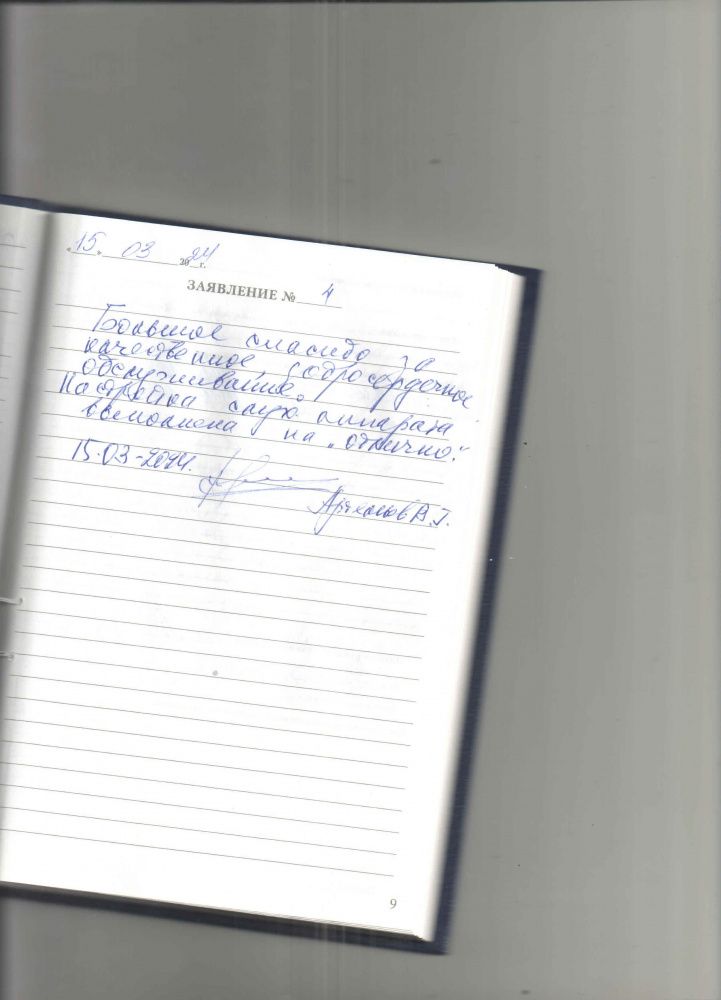 "15" 03 2024 г.
ЗАЯВЛЕНИЕ № 4
Большое спасибо за
качественное добросердечное
обслуживание.
Настройка слух. аппарата
выполнена на "отлично".
15.03-2024г.
В.Г.
9